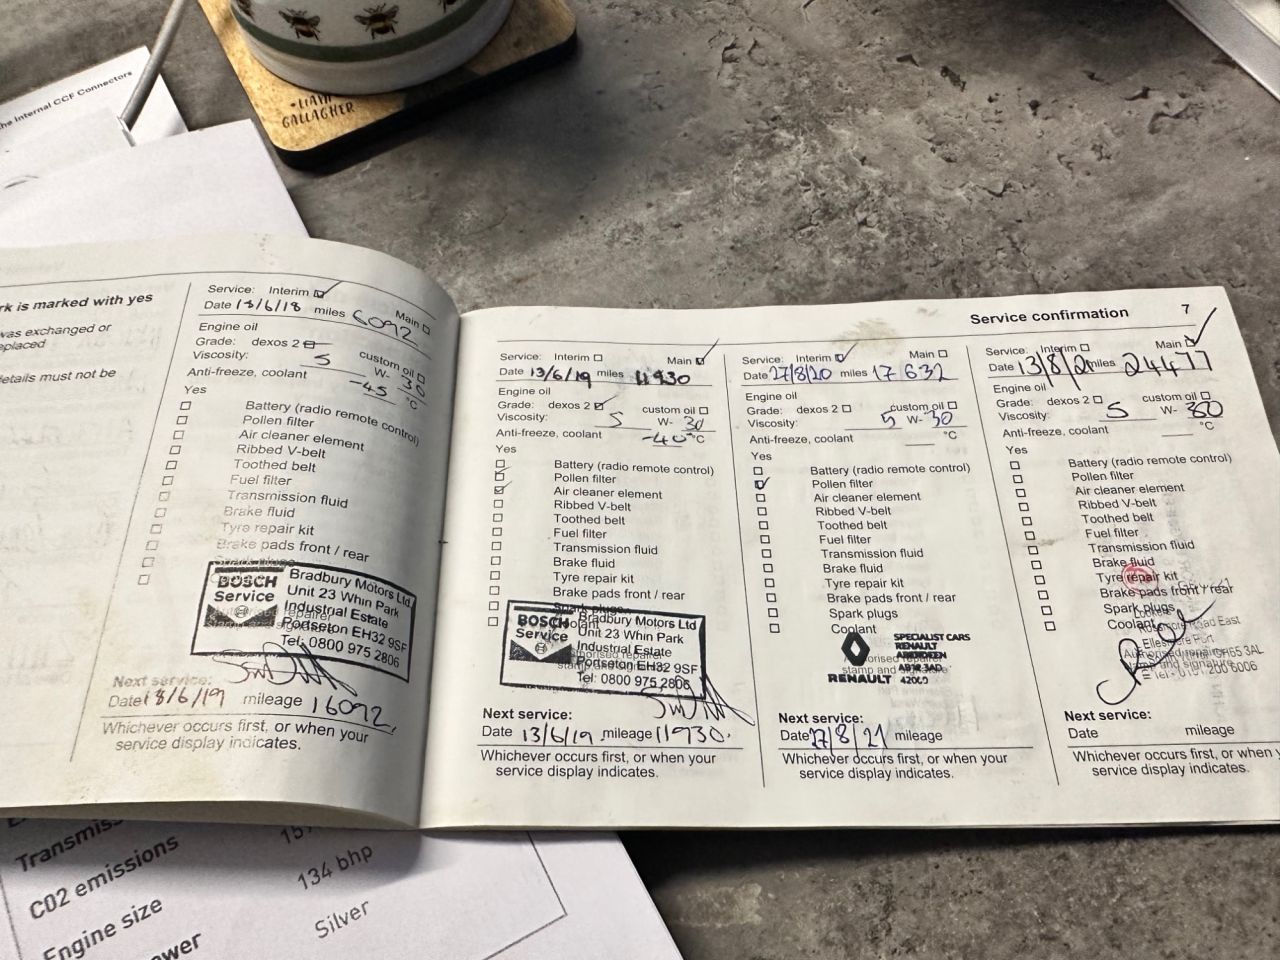 LIAM
GALLAGHER
the Internal CCF Connectors
rk is marked with yes
was exchanged or
eplaced
details must not be
Service: Interim
Main
Date 18/6/18 miles 6092
Engine oil
Grade: dexos 2
custom oil
Viscosity: 5 W- 30
Anti-freeze, coolant -45 °C
Yes
Battery (radio remote control)
Pollen filter
Air cleaner element
Ribbed V-belt
Toothed belt
Fuel filter
Transmission fluid
Brake fluid
Tyre repair kit
Brake pads front / rear
Spark plugs
BOSCH
Service
Bradbury Motors Ltd
Unit 23 Whin Park
Industrial Estate
Portseton EH32 9SF
Tel: 0800 975 2806
Next service:
Date 18/6/19 mileage 16092
Whichever occurs first, or when your
service display indicates.
Service confirmation 7
Service: Interim Main
Date 13/6/19 miles 11930
Engine oil
Grade: dexos 2 custom oil
Viscosity: 5 W- 30
Anti-freeze, coolant -40 °C
Yes
Battery (radio remote control)
Pollen filter
Air cleaner element
Ribbed V-belt
Toothed belt
Fuel filter
Transmission fluid
Brake fluid
Tyre repair kit
Brake pads front / rear
Spark plugs
BOSCH
Service
Bradbury Motors Ltd
Unit 23 Whin Park
Industrial Estate
Portseton EH32 9SF
Tel: 0800 975 2806
Next service:
Date 13/6/19 mileage 11930.
Whichever occurs first, or when your
service display indicates.
Service: Interim Main
Date 27/8/20 miles 17 632
Engine oil
Grade: dexos 2 custom oil
Viscosity: 5 W- 30
Anti-freeze, coolant °C
Yes
Battery (radio remote control)
Pollen filter
Air cleaner element
Ribbed V-belt
Toothed belt
Fuel filter
Transmission fluid
Brake fluid
Tyre repair kit
Brake pads front / rear
Spark plugs
Coolant
SPECIALIST CARS
RENAULT
ABERDEEN
RENAULT
Next service:
Date 27/8/21 mileage
Whichever occurs first, or when your
service display indicates.
Service: Interim Main
Date 13/8/21 miles 24477
Engine oil
Grade: dexos 2 custom oil
Viscosity: 5 W-
Anti-freeze, coolant °C
Yes
Battery (radio remote control)
Pollen filter
Air cleaner element
Ribbed V-belt
Toothed belt
Fuel filter
Transmission fluid
Brake fluid
Tyre repair kit
Brake pads front / rear
Spark plugs
Coolant
Road East
Ellesmere Port
CH65 3AL
Next service:
Date mileage
Whichever occurs first, or when
service display indicates.
Transmiss
C02 emissions 15
Engine size 134 bhp
ower Silver